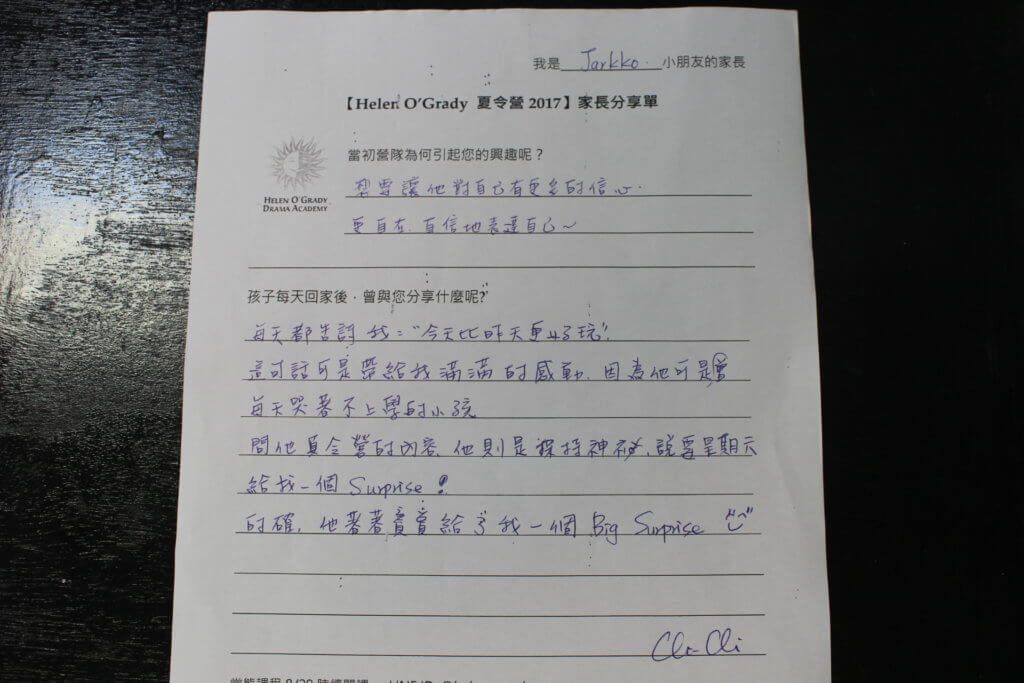 我是 Jarkko. 小朋友的家長
【Helen O'Grady 夏令營 2017】家長分享單
HELEN O'GRADY
DRAMA ACADEMY
當初營隊為何引起您的興趣呢？
想要讓他對自己有更多的信心.
更自在.自信地表達自己~
孩子每天回家後，曾與您分享什麼呢?
每天都告訴我："今天比昨天更好玩"!
這句話可是帶給我滿滿的感動.因為他可是會
每天哭著不上學的小孩
問他夏令營的內容.他則是保持神祕.說要星期天
給我一個 Surprise!
的確.他著著實實給了我一個 Big Surprise